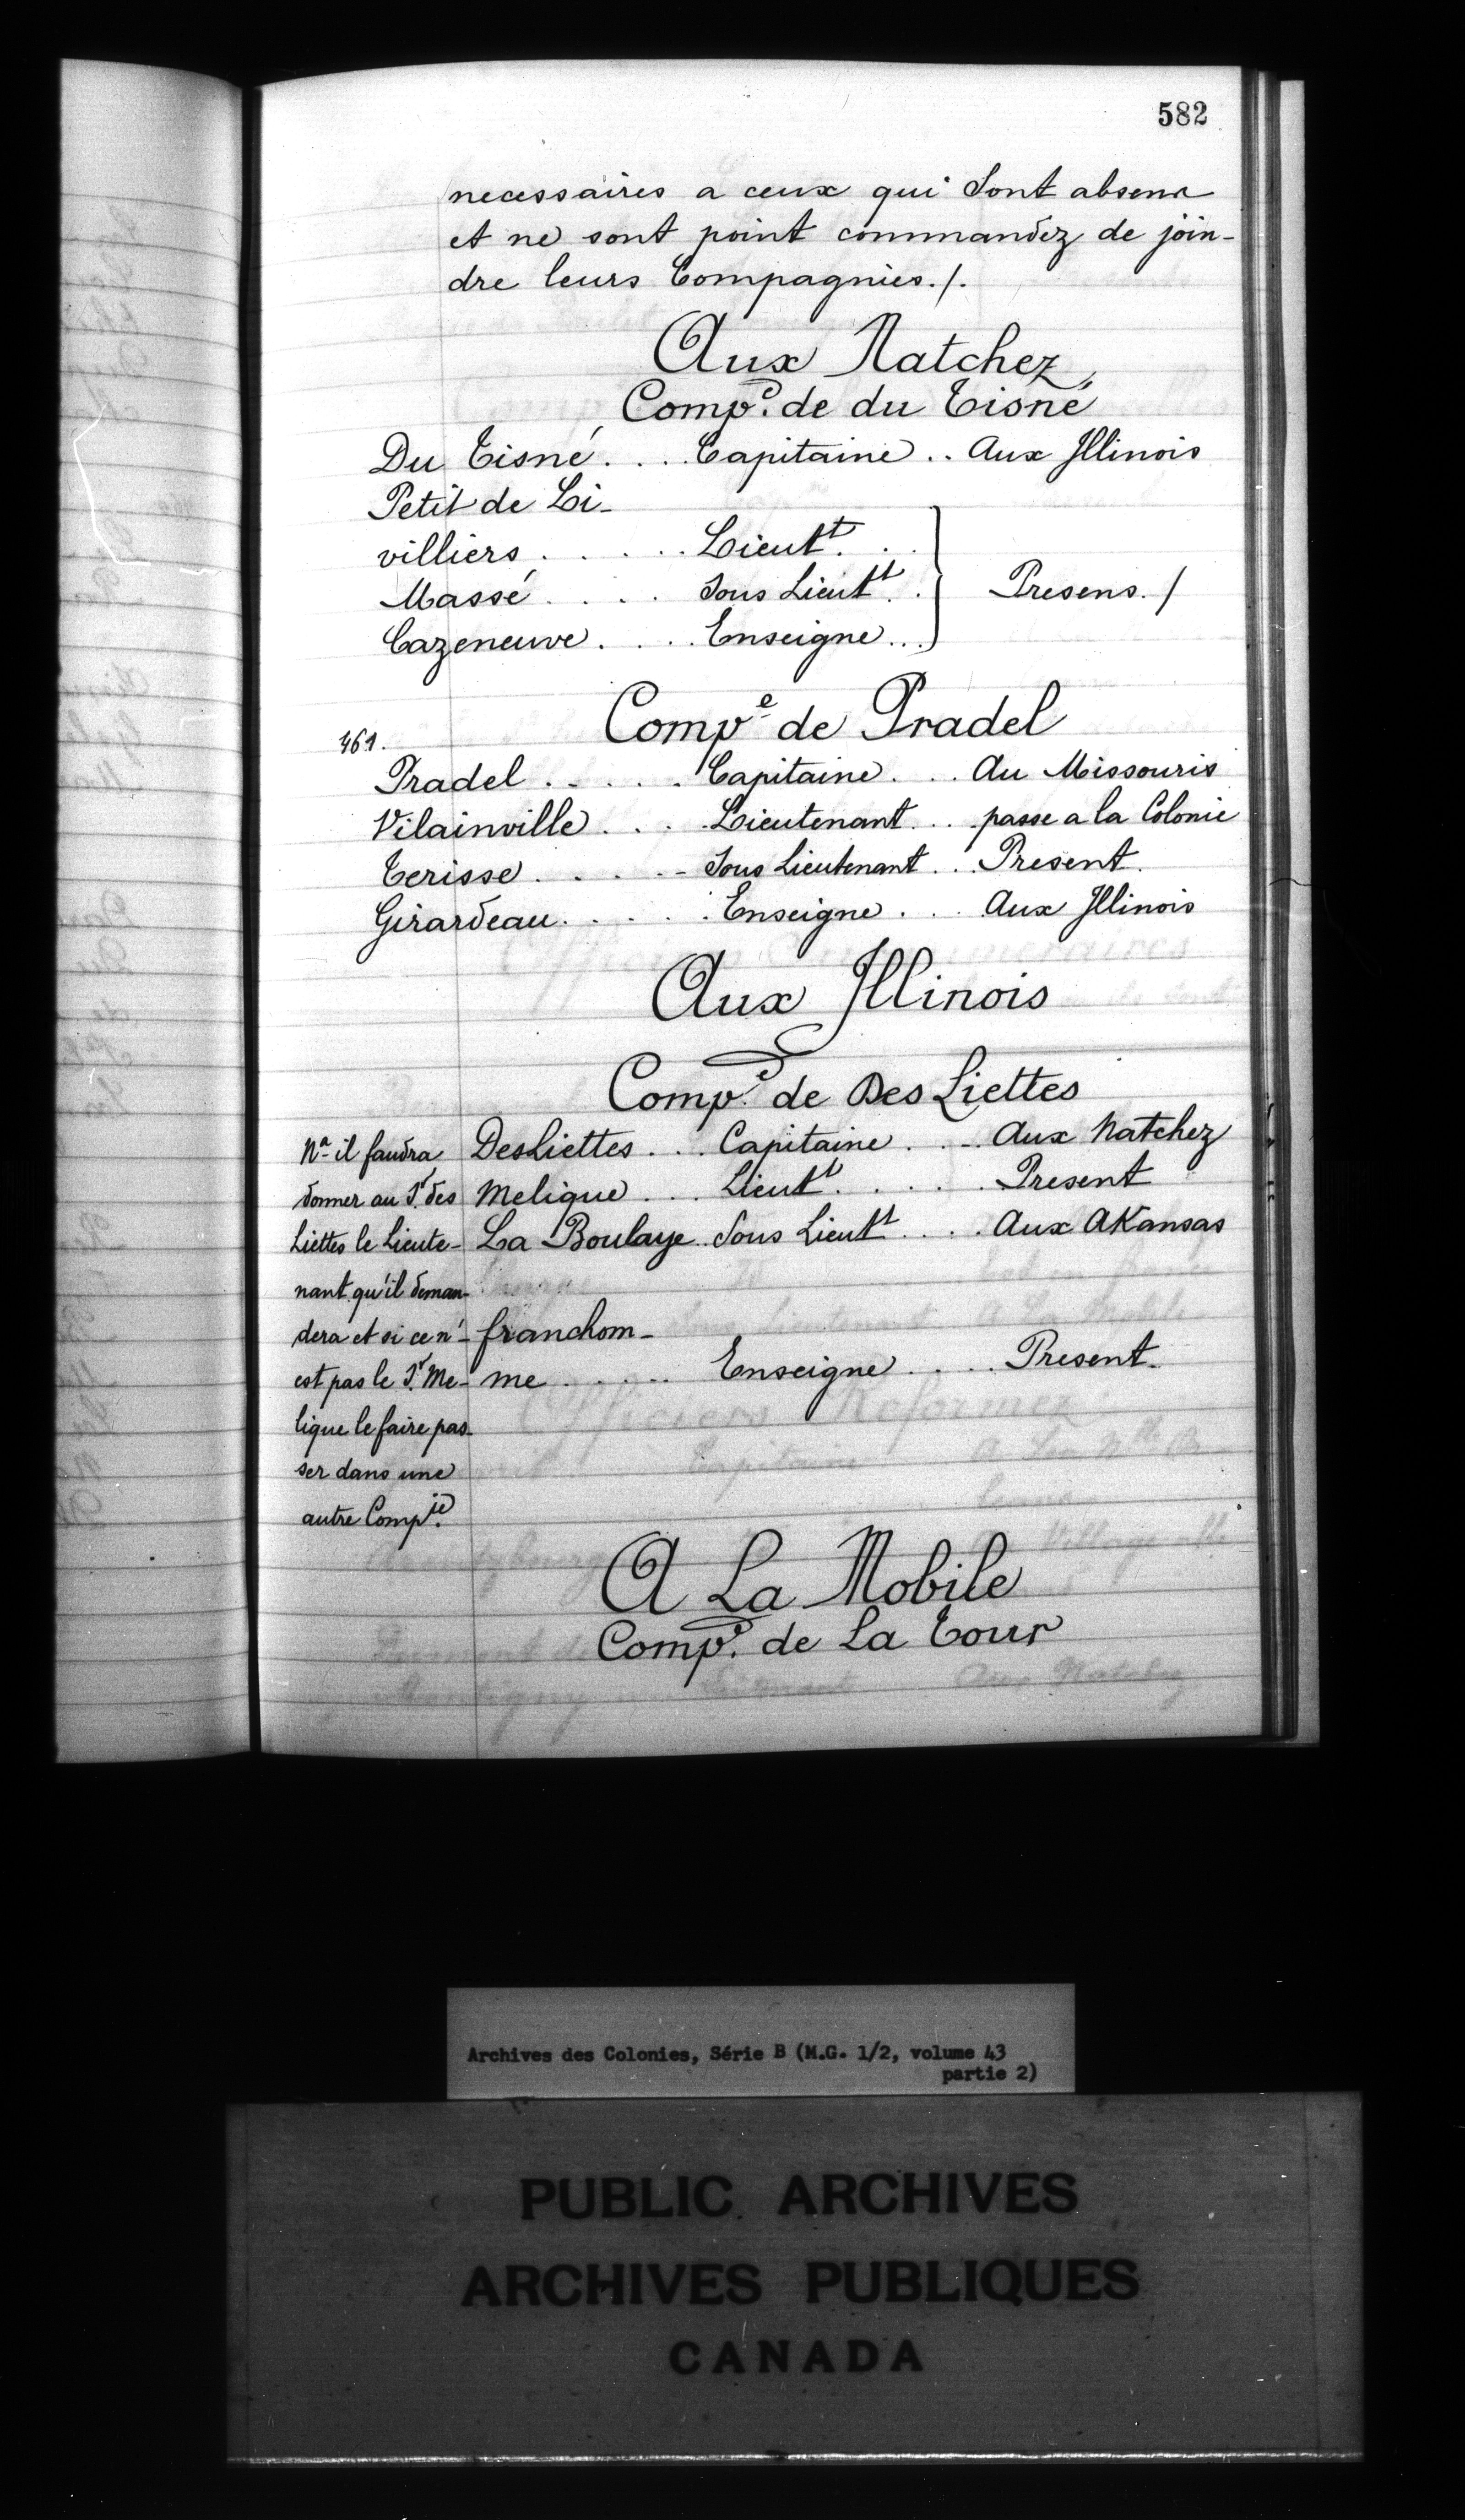 582
necessaires a ceux qui sont absens
et ne sont point commandez de join-
dre leurs Compagnies./.
Aux Natchez
Comp.e de du Tisné
Du Tisné. . . . Capitaine . . Aux Illinois
Petit de Li-
villiers . . . . . Lieutt. . .
Massé . . . . Sous Lieutt. . Presens. /
Cazeneuve. . . . Enseigne . . .
Compe de Pradel
461.
Pradel . . . . . Capitaine. . . Au Missouris
Vilainville . . . . Lieutenant. . . passe a la Colonie
Terisse . . . . - Sous Lieutenant . . . Present.
Girardeau. . . . . Enseigne . . . Aux Illinois
Aux Illinois
Comp.e de Des Liettes
DesLiettes . . . Capitaine . . . Aux Natchez
Melique . . . Lieutt. . . . . . Present
La Boulaye . . Sous Lieutt . . . . Aux AKansas
franchom-
me . . . . . Enseigne . . . . Present.
Na il faudra
donner au Sr. des
Liettes le Lieute-
nant qu'il deman-
dera et si ce n'-
est pas le Sr. Me-
lique le faire pas-
ser dans une
autre Compie.
A La Mobile
Comp.e de La Tour
Archives des Colonies, Série B (M.G. 1/2, volume 43
partie 2)
PUBLIC ARCHIVES
ARCHIVES PUBLIQUES
CANADA